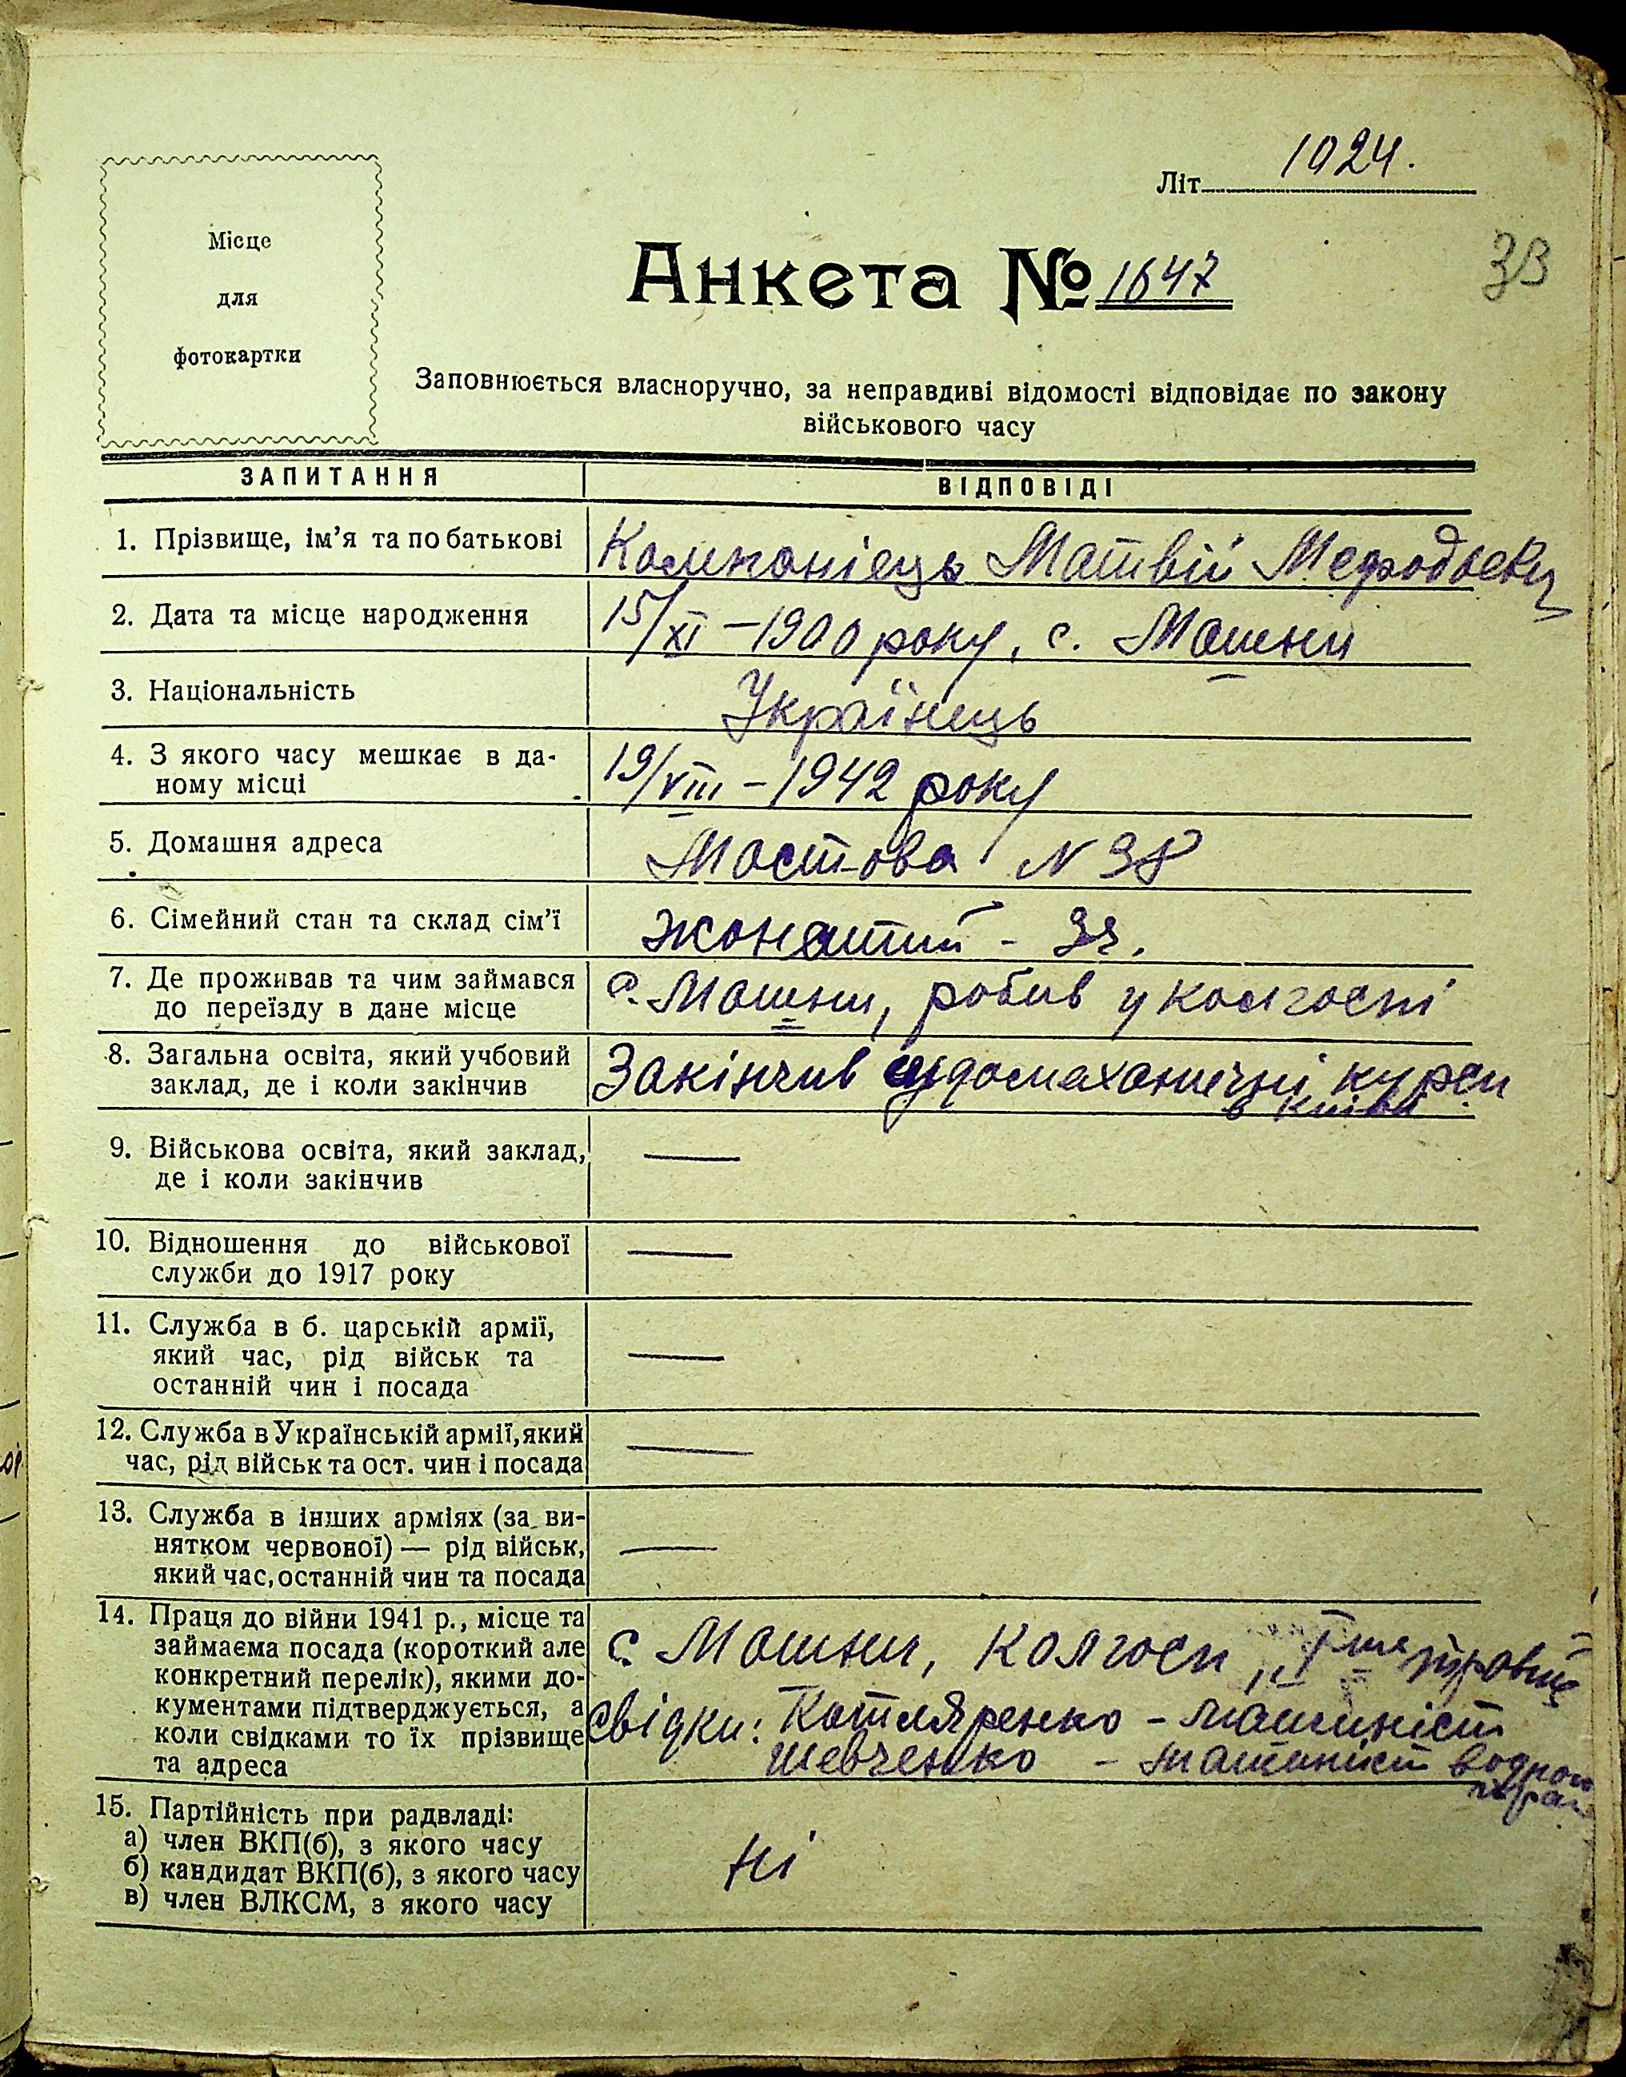 Літ. 1024.
33
Місце
для
фотокартки
Анкета № 1647
Заповнюється власноручно, за неправдиві відомості відповідає по закону
військового часу
ЗАПИТАННЯ
ВІДПОВІДІ
1. Прізвище, ім’я та по батькові
Компонієць Матвій Мефодьевич
2. Дата та місце народження
15/XI – 1900 року, с. Машни
3. Національність
Українець
4. З якого часу мешкає в да-
ному місці
19/VIII – 1942 року
5. Домашня адреса
Мостова N 38
6. Сімейний стан та склад сім’ї
жонатий - 3ч.
7. Де проживав та чим займався
до переїзду в дане місце
с. Машни, робив у колгоспі
8. Загальна освіта, який учбовий
заклад, де і коли закінчив
Закінчив курси
в Київі
9. Військова освіта, який заклад,
де і коли закінчив
—
10. Відношення до військової
служби до 1917 року
—
11. Служба в б. царській армії,
який час, рід військ та
останній чин і посада
—
12. Служба в Українській армії, який
час, рід військ та ост. чин і посада
—
13. Служба в інших арміях (за ви-
нятком червоної) — рід військ,
який час, останній чин та посада
—
14. Праця до війни 1941 р., місце та
займаєма посада (короткий але
конкретний перелік), якими до-
кументами підтверджується, а
коли свідками то їх прізвище
та адреса
с. Машни, колгосп
свідки: Котляренко – машиніст
Шевченко – машиніст водного
15. Партійність при радвладі:
а) член ВКП(б), з якого часу
б) кандидат ВКП(б), з якого часу
в) член ВЛКСМ, з якого часу
ні